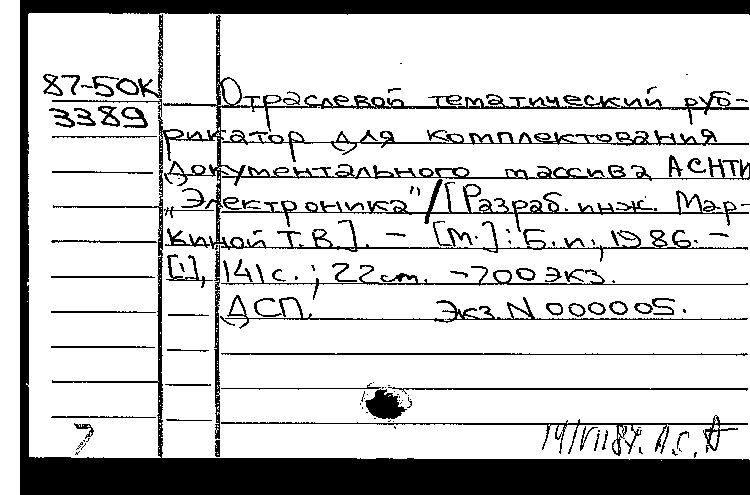 87-50К
3389
Отраслевой тематический руб-
рикатор для комплектования
документального массива АСНТИ
„Электроника"/[Разраб. инж. Мар-
киной Т.В.]. – [М.]: Б.и., 1986. –
[1], 141 с.; 22 см. – 700 экз.
ДСП. Экз. N 000005.
7